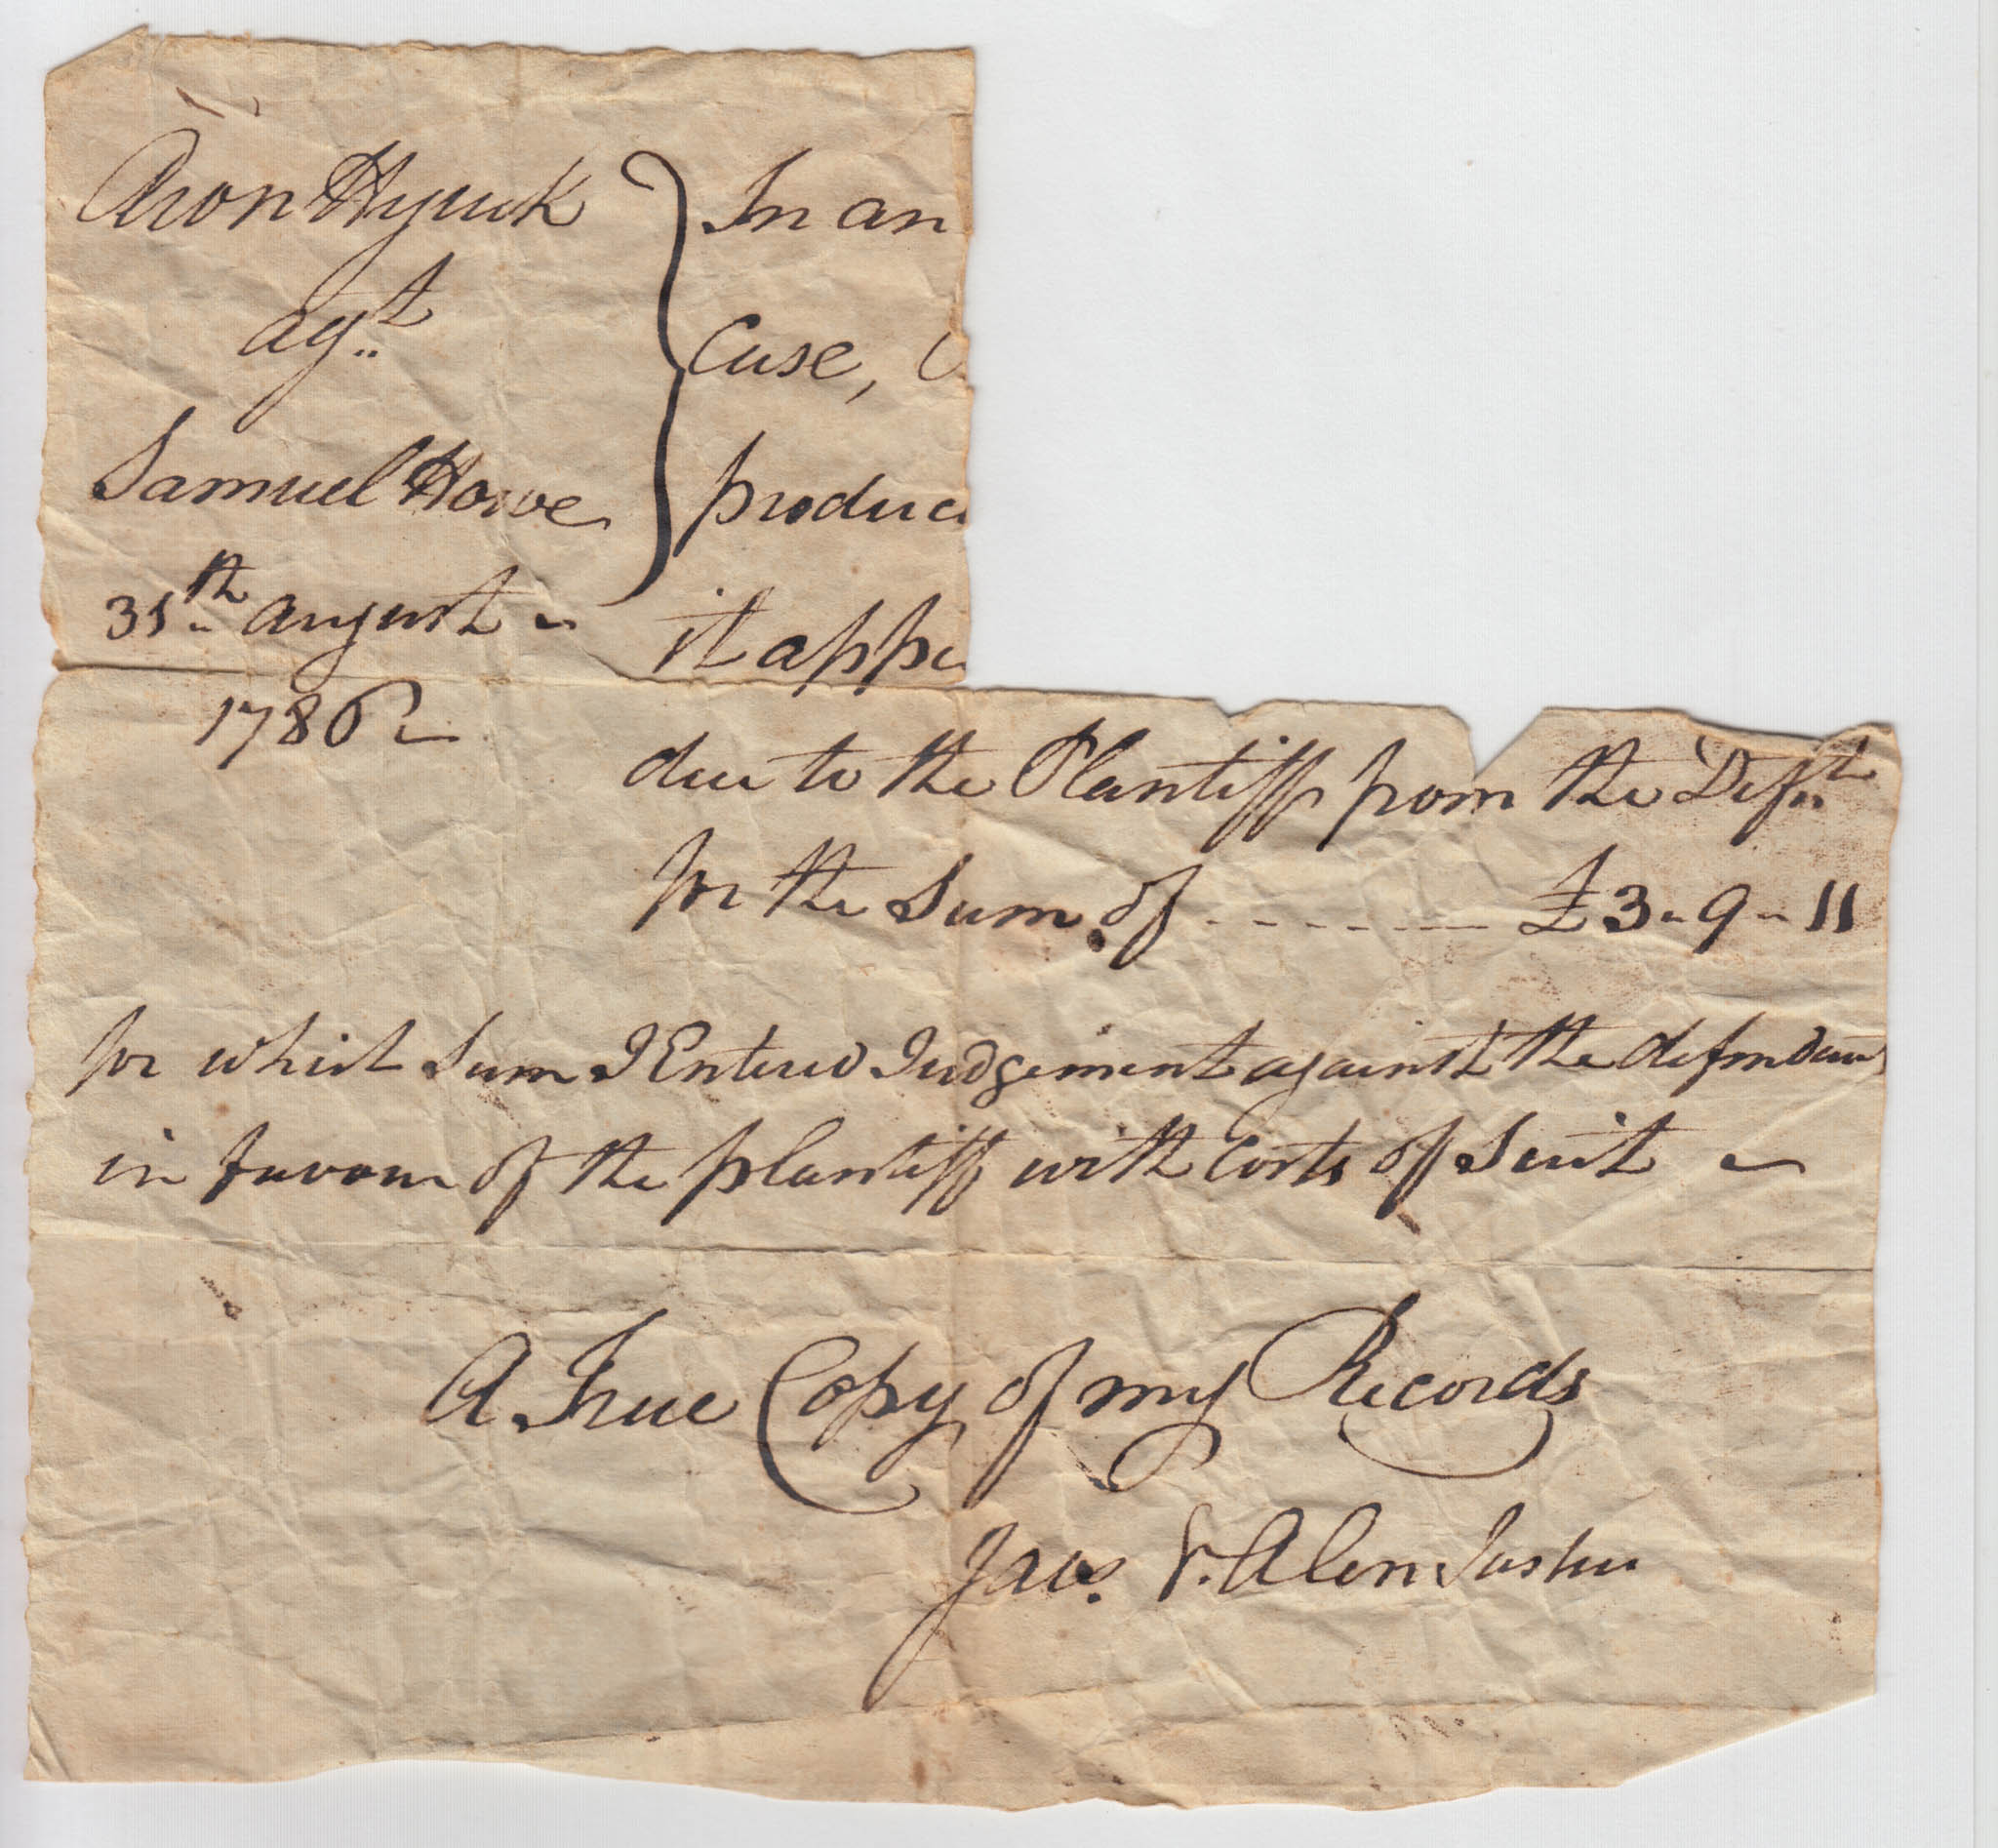 Aron Hyuck
agt
Samuel Howe
31th august
1786
In an
Case,
produc
it appe
due to the Plantiff from the Defnt
for the Sum of - - - - - - £3-9-11
for which Sum I Entered Judgement against the defendan
in favour of the plantiff with Costs of Suit
A True Copy of my Records
V. Alen Justice